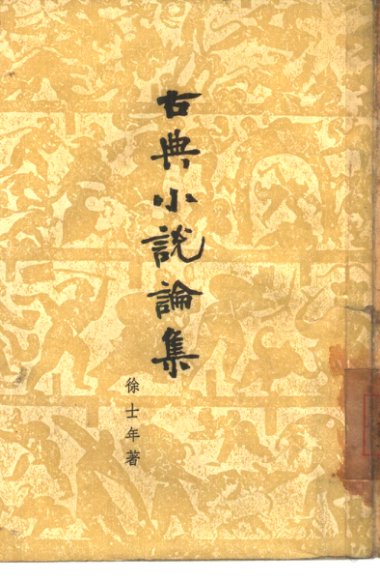 古典小說論集
徐士年著